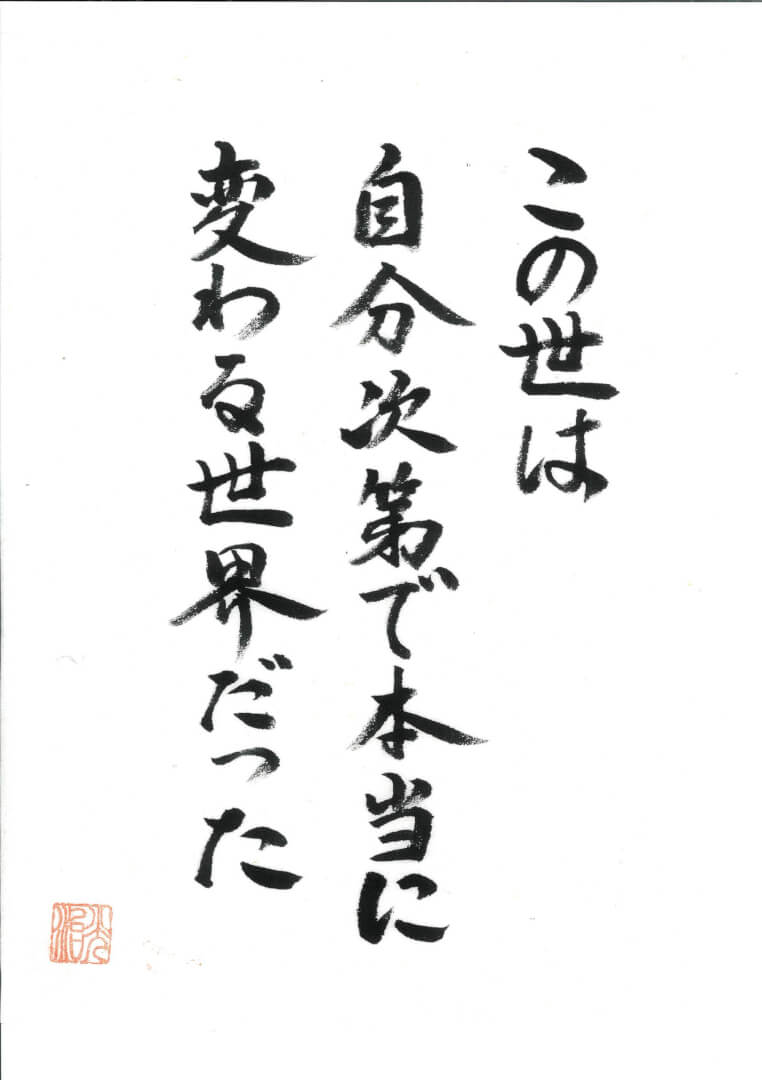 この世は
自分次第で本当に
変わる世界だった